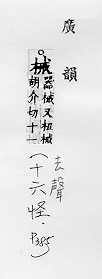 廣韻
。械 器械又杻械
胡介切十一
(十六怪. P385
去聲